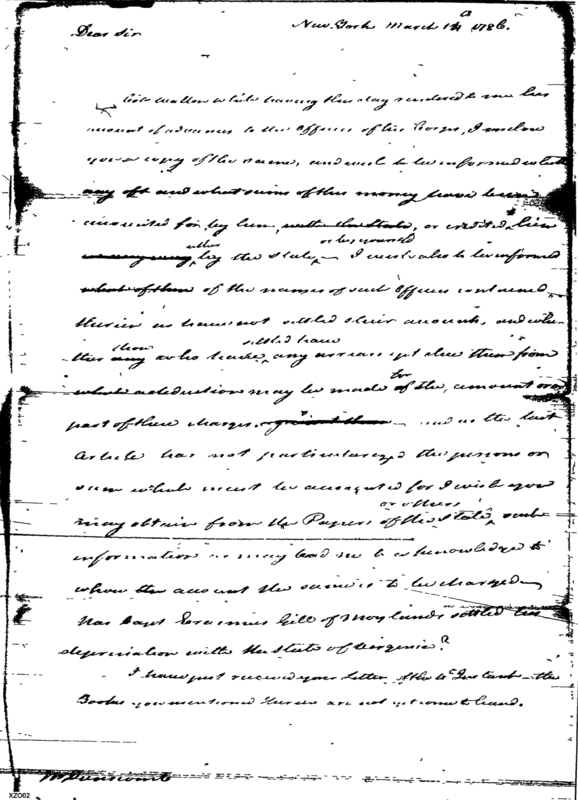 New York March 14 1786.
Dear Sir
Col. Walton White having this day rendered to me his
amount of advances to the Officers of his Corps, I inclose
you a copy of the same, and wish to be informed
any of & and what sums of this money have been
accounted for by him, with the State, or credited him
either or by yourself
in any way, by the State, I wish also to be informed
what of them of the names of such Officers contained
therein as have not settled their accounts, and whe-
them settled have
ther any who have any arrears yet due them from
for
which a deduction may be made of the, amount or
part of these charges, against them and as the last
Article has not particularized the persons or
sum which must be accounted for I wish you
or others
may obtain from the Papers of the State, such
information as may lead me to a knowledge to
whose the account the same is to be charged
Has Capt Erasmus Gill of Moylands settled his
depreciation with the State of Virginia?
I have just received your letter of the 4th Instant the
Books you mentioned therein are not yet come to hand.
Mr Dunscomb
XZO02